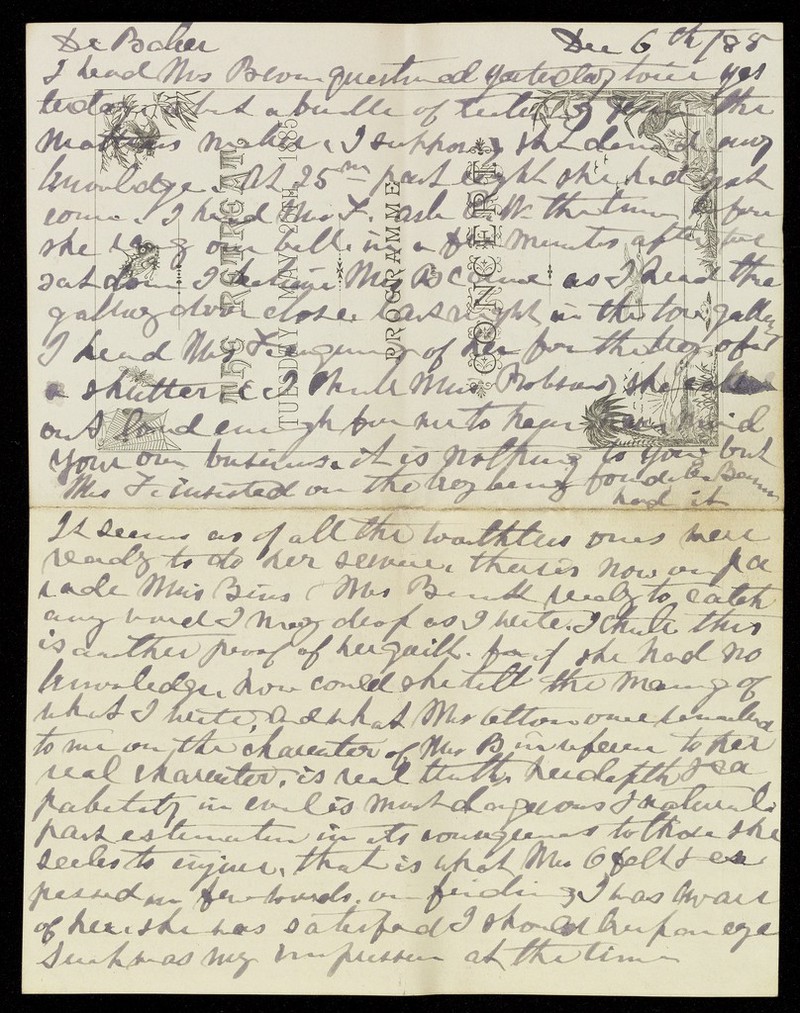 Dr Baker Dec 6th/85
I heard Mrs Bevan questioned yesterday twice yes
terday about a bundle of the
Mattress maker, I suppose she denied any
knowledge. At 25 m past eight she had just
come. I heard Mrs F. ask the time before
she rang our bell in a few minutes after we
sat down I believe Mrs B came as I heard the
gallery door close last night in the low gallery
I heard Mrs F enquiring of her for the key of
a shutter & I think Miss Robson, she
out loud enough for me to hear mind
your own business it is nothing to you but
Mrs F. insisted on the key being found Mrs Bevan
had it
It seems as if all the worthless ones were
ready to do her service, there is now on pa
rade Miss Bins & Mrs ready to catch
any word I may drop as I write. I think this
is another proof of her guilt. for if she had no
knowledge, how could she tell the meaning of
what I write and what Mrs once remarked
to me on the character of Mrs B in reference to her
real character, is real truth, her depth & ca
pability in evil is most dangerous &
past estimation in its consequences to those she
seeks to injure, that is what Mrs O felt & ex
pressed in few words. on finding I was aware
of her, she was satisfied I should keep an eye
Such was my impression at the time
THE RETREAT
TUESDAY MAY 26TH 1885
PROGRAMME
CONCERT